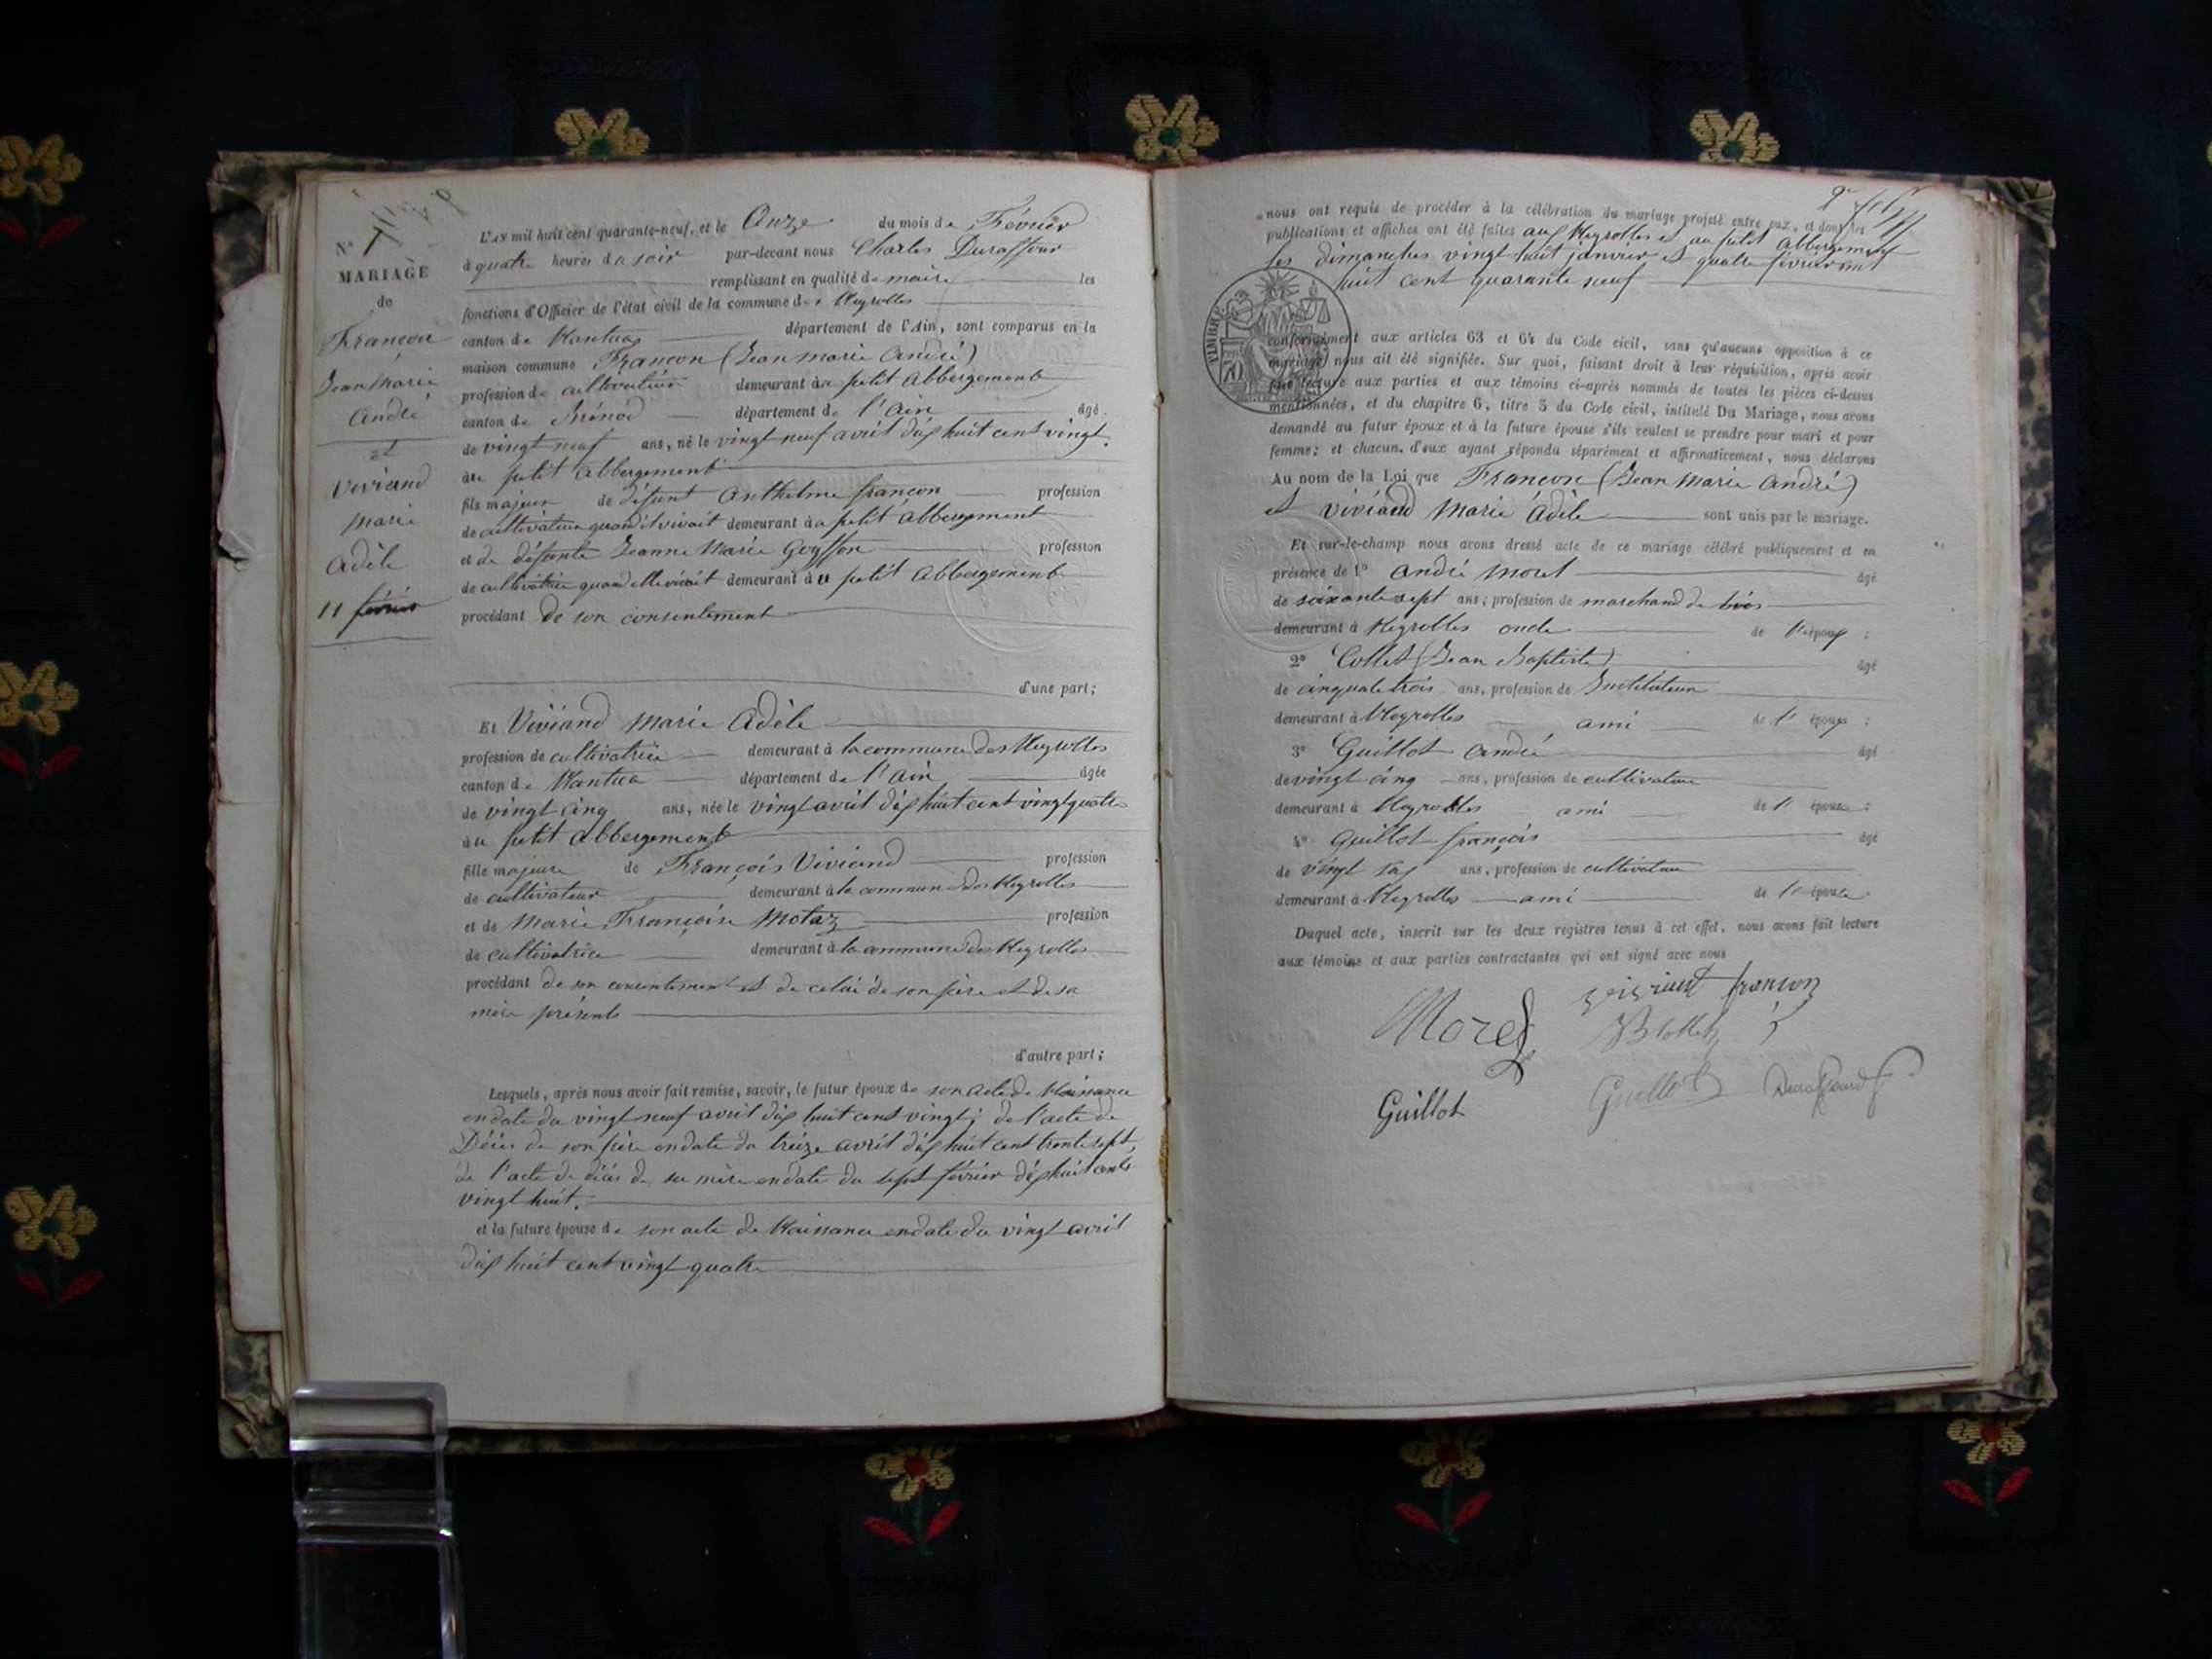 N° 1
MARIAGE
de
Françon
Jean Marie
André
et
Viviand
Marie
Adèle
11 février
L'AN mil huit cent quarante-neuf, et le Onze du mois de Février
à quatre heures du soir par-devant nous Charles Duraffour
remplissant en qualité de maire les
fonctions d'Officier de l'état civil de la commune des Neyrolles
canton de Nantua département de l'Ain, sont comparus en la
maison commune Françon (Jean Marie André)
profession de cultivateur demeurant au petit Abbergement
canton de Brénod département de l'Ain âgé
de vingt neuf ans, né le vingt neuf avril dix huit cent vingt
au petit Abbergement
fils majeur de défunt Anthelme françon profession
de cultivateur quand il vivait demeurant au petit Abbergement
et de défunte Jeanne Marie profession
de cultivatrice quand elle vivait demeurant au petit Abbergement
procédant de son consentement
d'une part;
Et Viviand Marie Adèle
profession de cultivatrice demeurant à la commune des Neyrolles
canton de Nantua département de l'Ain âgée
de vingt cinq ans, née le vingt avril dix huit cent vingt quatre
au petit Abbergement
fille majeure de François Viviand profession
de cultivateur demeurant à la commune des Neyrolles
et de Marie Françoise Motaz profession
de cultivatrice demeurant à la commune des Neyrolles
procédant de son consentement et de celui de son père et de sa
mère présents
d'autre part;
Lesquels, après nous avoir fait remise, savoir, le futur époux de son acte de Naissance
en date du vingt neuf avril dix huit cent vingt; de l'acte de
Décès de son père en date du treize avril dix huit cent trente sept,
de l'acte de décès de sa mère en date du sept février dix huit cent
vingt huit.
et la future épouse de son acte de Naissance en date du vingt avril
dix huit cent vingt quatre
nous ont requis de procéder à la célébration du mariage projeté entre eux, et dont les
publications et affiches ont été faites aux Neyrolles et au petit Abbergement
les dimanches vingt huit janvier et quatre février mil
huit cent quarante neuf
TIMBRE
70
conformément aux articles 63 et 64 du Code civil, sans qu'aucune opposition à ce
mariage nous ait été signifiée. Sur quoi, faisant droit à leur réquisition, après avoir
fait lecture aux parties et aux témoins ci-après nommés de toutes les pièces ci-dessus
mentionnées, et du chapitre 6, titre 5 du Code civil, intitulé Du Mariage, nous avons
demandé au futur époux et à la future épouse s'ils veulent se prendre pour mari et pour
femme; et chacun d'eux ayant répondu séparément et affirmativement, nous déclarons
Au nom de la Loi que Françon (Jean Marie André)
et Viviand Marie Adèle sont unis par le mariage.
Et sur-le-champ nous avons dressé acte de ce mariage célébré publiquement et en
présence de 1° André Morel âgé
de soixante sept ans; profession de marchand de bois
demeurant à Neyrolles oncle de l'époux;
2° Collet (Jean Baptiste) âgé
de cinquante trois ans, profession de Instituteur
demeurant à Neyrolles ami de l'époux;
3° Guillot André âgé
de vingt cinq ans, profession de cultivateur
demeurant à Neyrolles ami de l'épouse;
4° Guillot françois âgé
de vingt six ans, profession de cultivateur
demeurant à Neyrolles ami de l'épouse.
Duquel acte, inscrit sur les deux registres tenus à cet effet, nous avons fait lecture
aux témoins et aux parties contractantes qui ont signé avec nous
françon
Morel
Guillot Guillot Duraffour